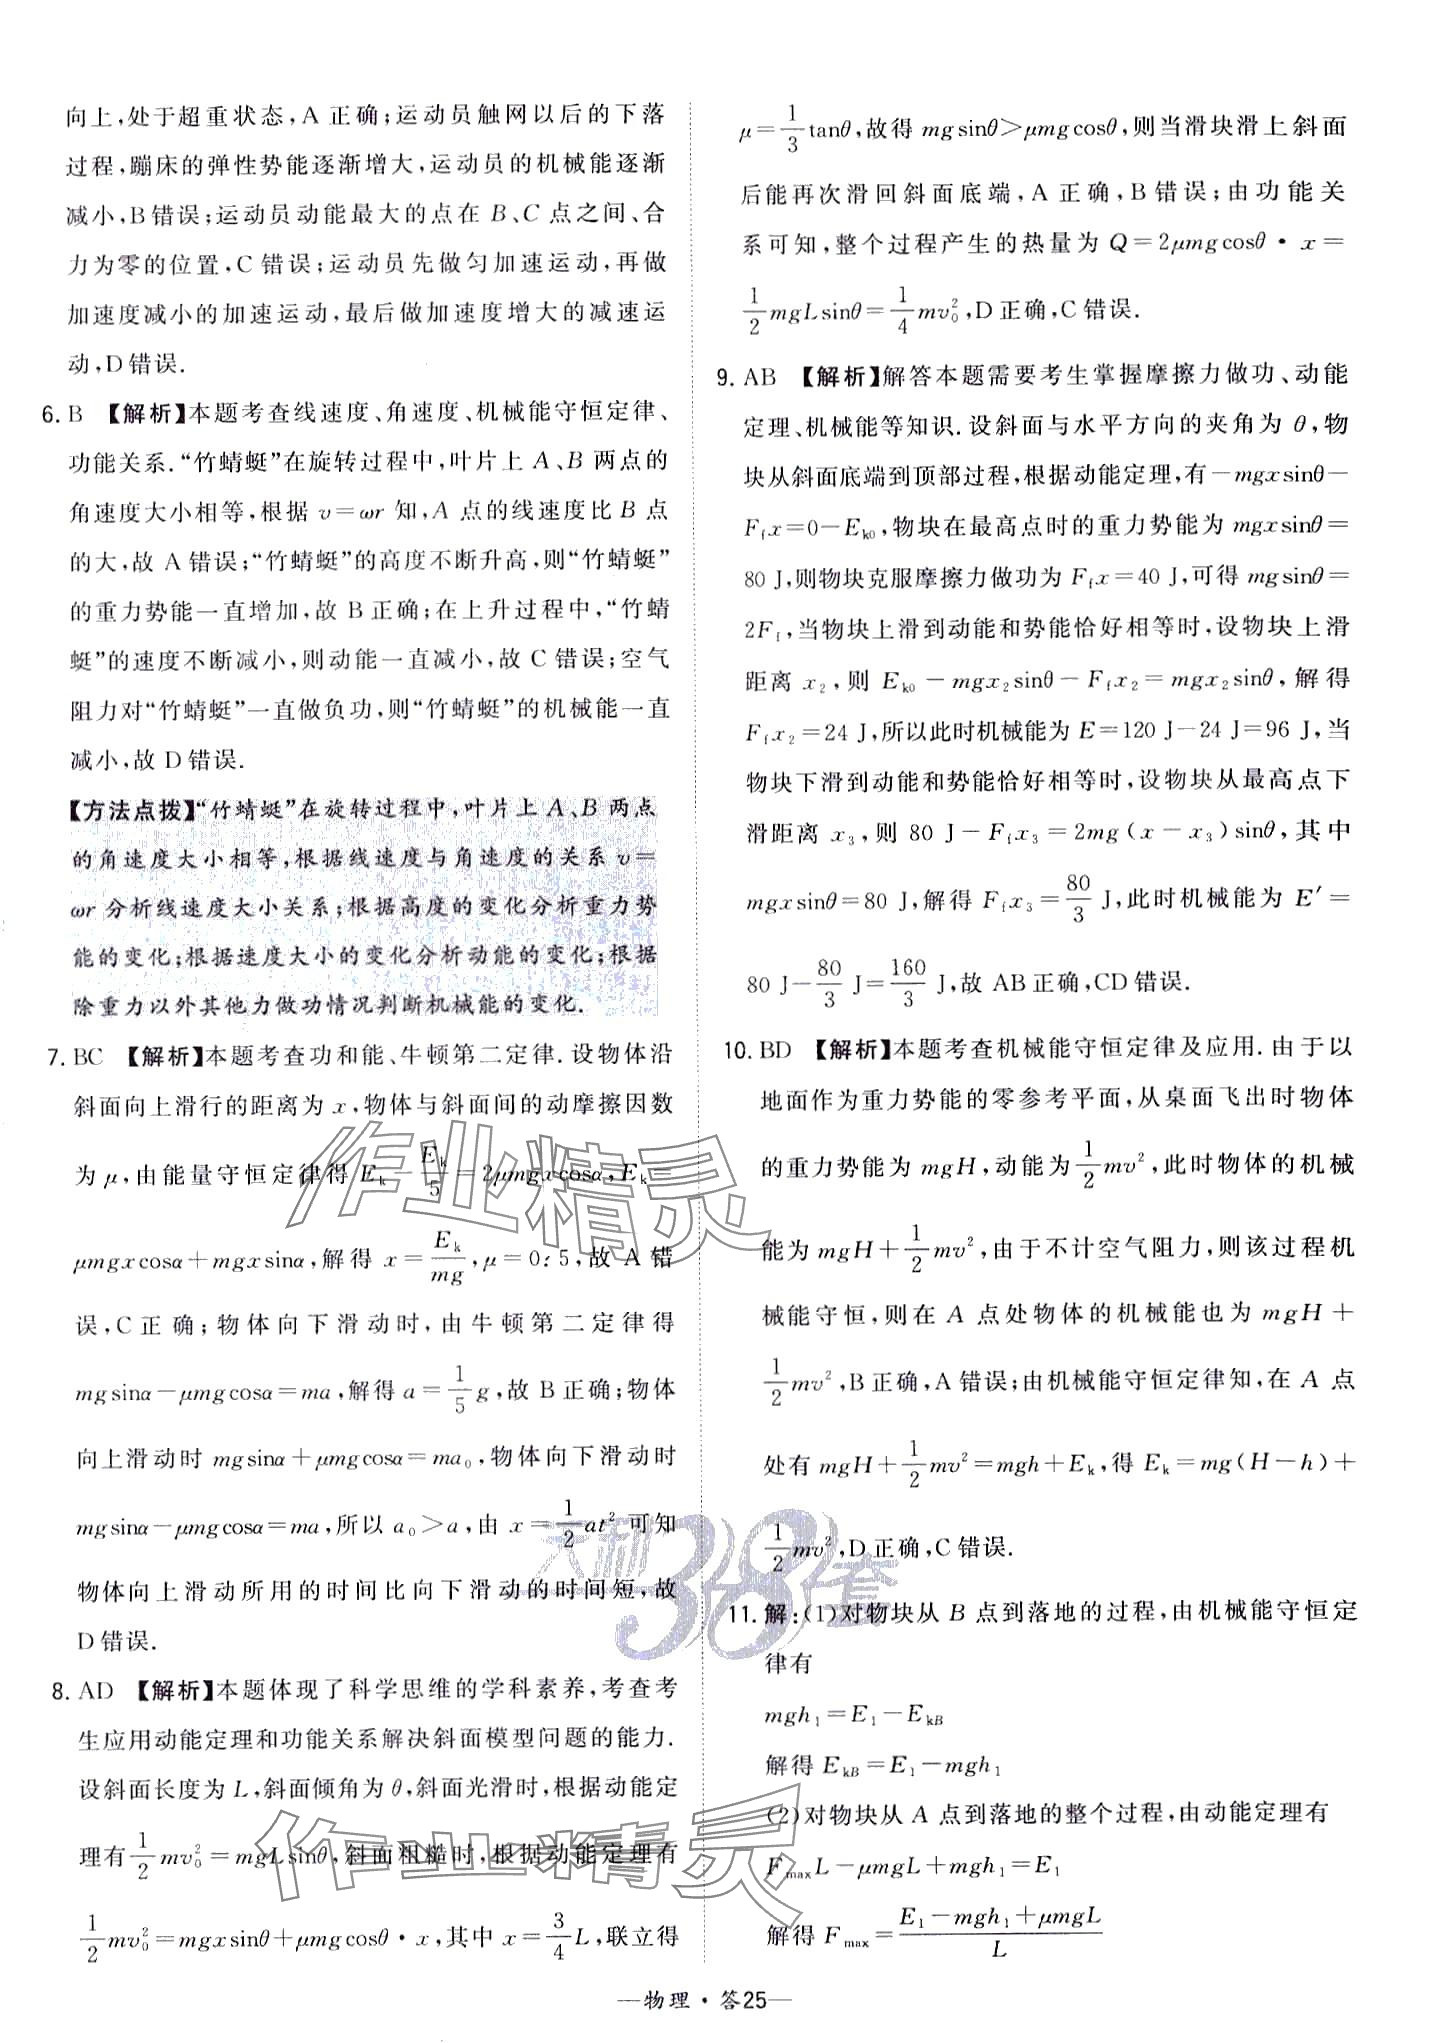 向上,处于超重状态,A 正确;运动员触网以后的下落
过程,蹦床的弹性势能逐渐增大,运动员的机械能逐渐
减小,B错误;运动员动能最大的点在 B、C 点之间、合
力为零的位置,C 错误;运动员先做匀加速运动,再做
加速度减小的加速运动,最后做加速度增大的减速运
动,D错误.
6. B 【解析】本题考查线速度、角速度、机械能守恒定律、
功能关系.“竹蜻蜓”在旋转过程中,叶片上 A、B 两点的
角速度大小相等,根据 v=ωr 知,A 点的线速度比 B 点
的大,故 A 错误;“竹蜻蜓”的高度不断升高,则“竹蜻蜓”
的重力势能一直增加,故 B 正确;在上升过程中,“竹蜻
蜓”的速度不断减小,则动能一直减小,故 C 错误;空气
阻力对“竹蜻蜓”一直做负功,则“竹蜻蜓”的机械能一直
减小,故 D 错误.
【方法点拨】“竹蜻蜓”在旋转过程中,叶片上 A、B 两点
的角速度大小相等,根据线速度与角速度的关系 v=
ωr 分析线速度大小关系;根据高度的变化分析重力势
能的变化;根据速度大小的变化分析动能的变化;根据
除重力以外其他力做功情况判断机械能的变化.
7. BC 【解析】本题考查功和能、牛顿第二定律.设物体沿
斜面向上滑行的距离为 x,物体与斜面间的动摩擦因数
为 μ,由能量守恒定律得 E_k−E_k/5=2μmgxcosα,E_k=
μmgxcosα+mgxsinα,解得 x=E_k/mg,μ=0.5,故 A 错
误,C正确;物体向下滑动时,由牛顿第二定律得
mgsinα−μmgcosα=ma,解得 a=1/5 g,故 B 正确;物体
向上滑动时 mgsinα+μmgcosα=ma₀,物体向下滑动时
mgsinα−μmgcosα=ma,所以 a₀>a,由 x=1/2 at² 可知
物体向上滑动所用的时间比向下滑动的时间短,故
D 错误.
8. AD 【解析】本题体现了科学思维的学科素养,考查考
生应用动能定理和功能关系解决斜面模型问题的能力.
设斜面长度为 L,斜面倾角为 θ,斜面光滑时,根据动能定
理有 1/2 mv₀²=mgLsinθ,斜面粗糙时,根据动能定理有
1/2 mv₀²=mgxsinθ+μmgcosθ·x,其中 x=3/4 L,联立得
μ=1/3 tanθ,故得 mgsinθ>μmgcosθ,则当滑块滑上斜面
后能再次滑回斜面底端,A 正确,B 错误;由功能关
系可知,整个过程产生的热量为 Q=2μmgcosθ·x=
1/2 mgLsinθ=1/4 mv₀²,D正确,C错误.
9. AB 【解析】解答本题需要考生掌握摩擦力做功、动能
定理、机械能等知识.设斜面与水平方向的夹角为 θ,物
块从斜面底端到顶部过程,根据动能定理,有−mgxsinθ−
F_f x=0−E_k0,物块在最高点时的重力势能为 mgxsinθ=
80 J,则物块克服摩擦力做功为 F_f x=40 J,可得 mgsinθ=
2F_f,当物块上滑到动能和势能恰好相等时,设物块上滑
距离 x₂,则 E_k0−mgx₂sinθ−F_f x₂=mgx₂sinθ,解得
F_f x₂=24 J,所以此时机械能为 E=120 J−24 J=96 J,当
物块下滑到动能和势能恰好相等时,设物块从最高点下
滑距离 x₃,则 80 J−F_f x₃=2mg(x−x₃)sinθ,其中
mgxsinθ=80 J,解得 F_f x₃=80/3 J,此时机械能为 E′=
80 J−80/3 J=160/3 J,故 AB正确,CD错误.
10. BD 【解析】本题考查机械能守恒定律及应用.由于以
地面作为重力势能的零参考平面,从桌面飞出时物体
的重力势能为 mgH,动能为 1/2 mv²,此时物体的机械
能为 mgH+1/2 mv²,由于不计空气阻力,则该过程机
械能守恒,则在 A 点处物体的机械能也为 mgH+
1/2 mv²,B正确,A错误;由机械能守恒定律知,在 A 点
处有 mgH+1/2 mv²=mgh+E_k,得 E_k=mg(H−h)+
1/2 mv²,D正确,C错误.
11. 解:(1)对物块从 B 点到落地的过程,由机械能守恒定
律有
mgh₁=E₁−E_kB
解得 E_kB=E₁−mgh₁
(2)对物块从 A 点到落地的整个过程,由动能定理有
F_max L−μmgL+mgh₁=E₁
解得 F_max=(E₁−mgh₁+μmgL)/L
—物理·答25—
作业精灵
天利38套
作业精灵